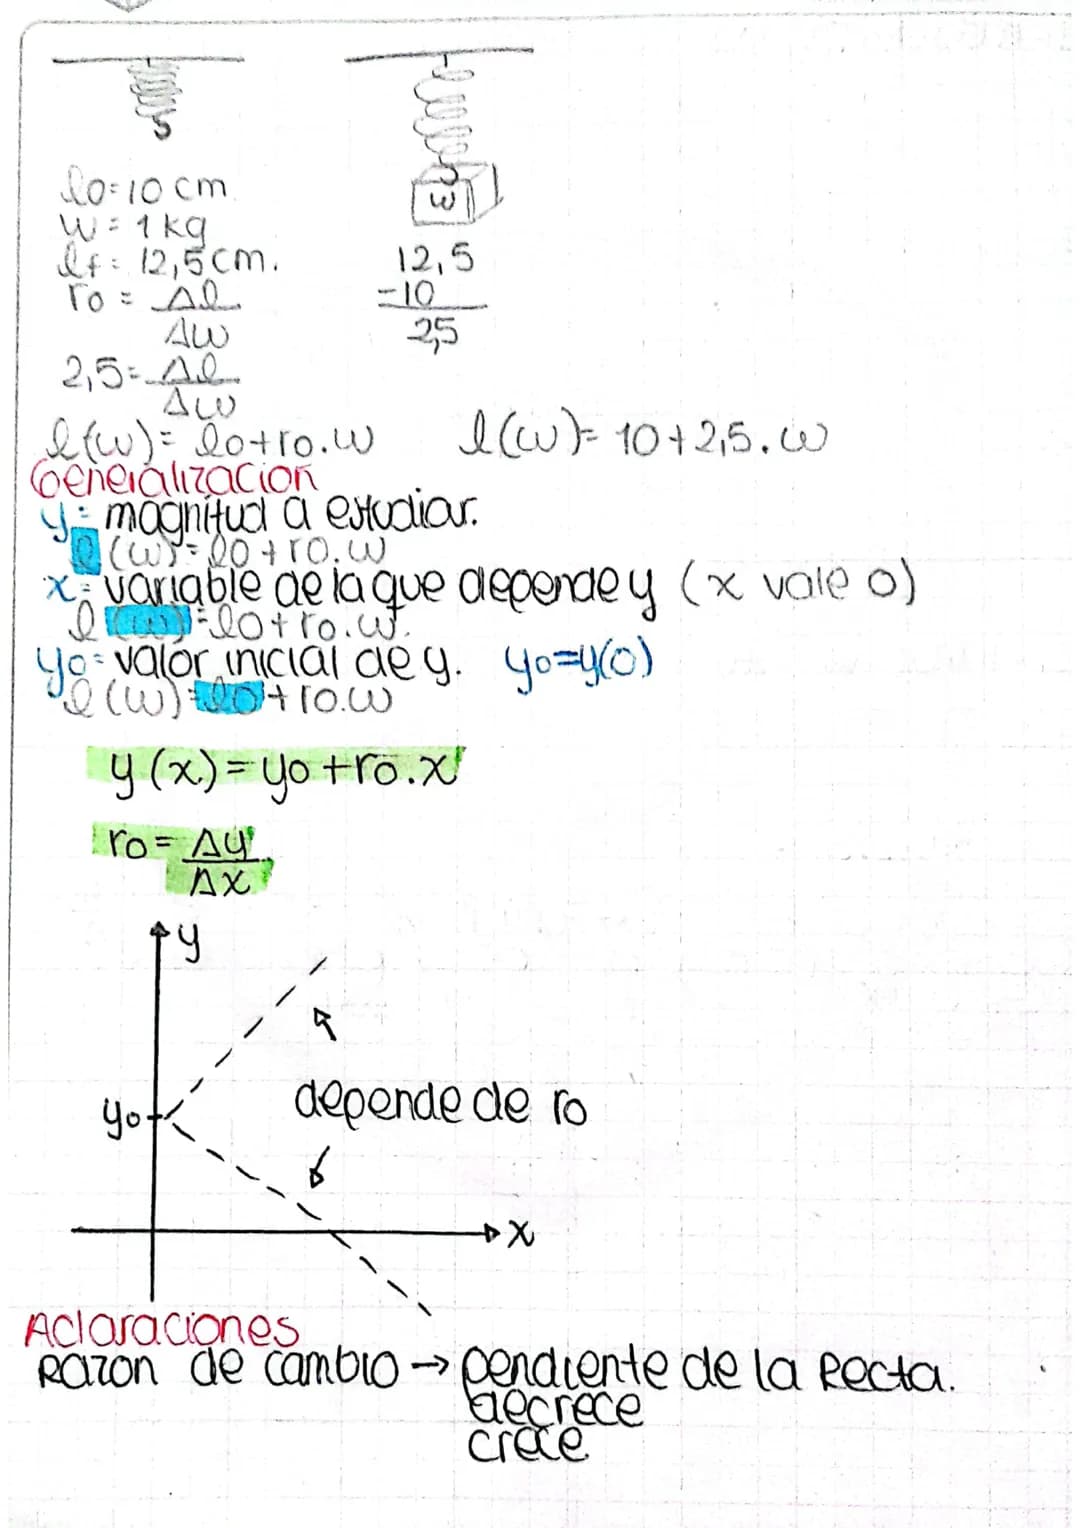 l0=10 cm
W = 1 kg
lf = 12,5 cm.
r0 = Δl
ΔW
2,5 = Δl
Δω
W
12,5
-10
2,5
l(w) = l0+r0.W
l(ω) = 10+2,5.ω
Generalizacion
y= magnitud a estudiar.
l(w) = l0+r0.w
x= variable de la que depende y (x vale 0)
l(w) = l0+r0.w.
y0= valor inicial de y. y0=y(0)
l(w)= l0+r0.w
y(x)= y0+r0.x
r0 = Δy
Δx
y
depende de r0
y0
x
Aclaraciones
Razon de cambio → pendiente de la Recta.
decrece
crece.